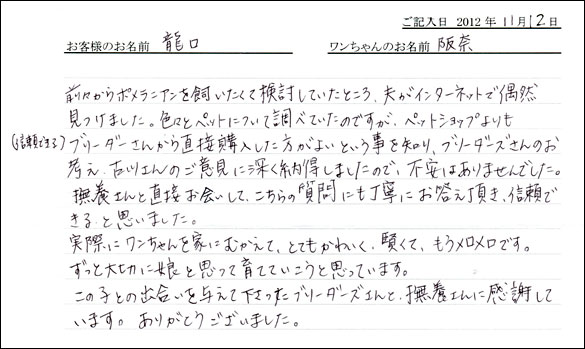 ご記入日 2012 年 11月 12日
お客様のお名前 龍口 ワンちゃんのお名前 阪奈
前々からポメラニアンを飼いたくて検討していたところ、夫がインターネットで偶然
見つけました。色々とペットについて調べていたのですが、ペットショップよりも
(信頼できる) ブリーダーさんから直接購入した方がよいという事を知り、ブリーダーズさんのお
考え、古川さんのご意見に深く納得しましたので、不安はありませんでした。
撫養さんと直接お会いして、こちらの質問にも丁寧にお答え頂き、信頼で
きると思いました。
実際にワンちゃんを家にむかえて、とてもかわいく、賢くて、もうメロメロです。
ずっと大切に娘と思って育てていこうと思っています。
この子との出合いを与えて下さったブリーダーズさんと、撫養さんに感謝して
います。ありがとうございました。